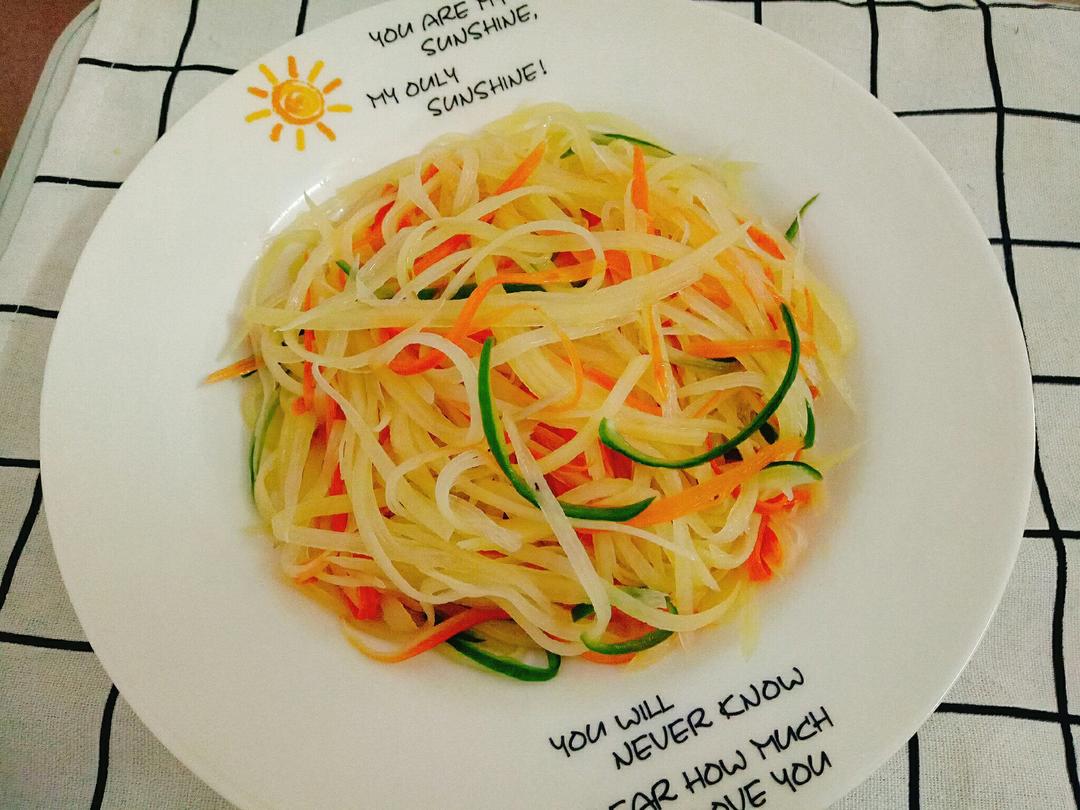 YOU ARE MY
SUNSHINE,
MY OULY
SUNSHINE!
YOU WILL
NEVER KNOW
EAR HOW MUCH
OVE YOU